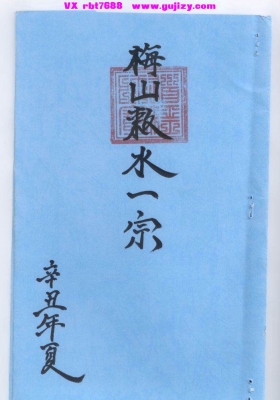 VX rbt7688 www.gujizy.com
梅山敕水一宗
辛丑年夏